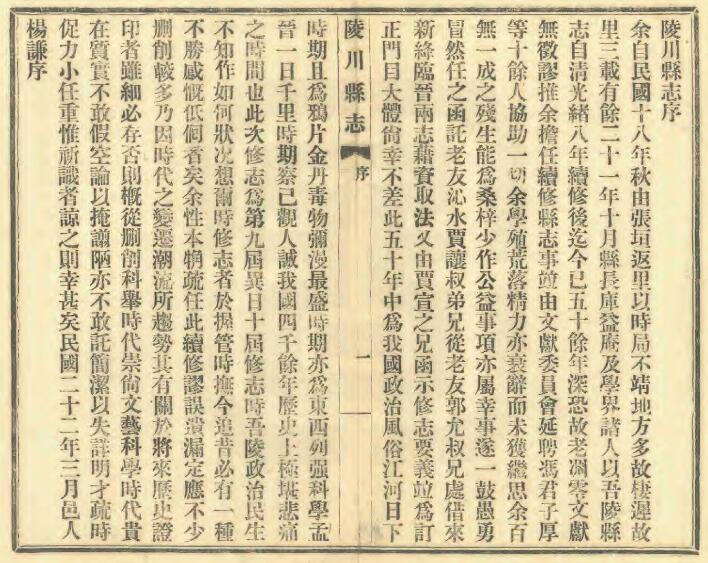 陵川縣志序
余自民國十八年秋由張垣返里以時局不靖地方多故棲遲故
里三載有餘二十一年十月縣長庫益庵及學界諸人以吾陵縣
志自清光緒八年續修後迄今已五十餘年深恐故老凋零文獻
無徵謬推余擔任續修縣志事竝由文獻委員會延聘馮君子厚
等十餘人協助一切余學殖荒落精力亦衰辭而未獲繼思余百
無一成之殘生能爲桑梓少作公益事項亦屬幸事遂一鼓愚勇
冒然任之函託老友沁水賈讓叔弟兄從老友郭允叔兄處借來
新絳臨晉兩志藉資取法又由賈宣之兄函示修志要義竝爲訂
正門目大體尙幸不差此五十年中爲我國政治風俗江河日下
陵川縣志
序
一
時期且爲鴉片金丹毒物彌漫最盛時期亦爲東西列强科學孟
晉一日千里時期察己觀人誠我國四千餘年歷史上極堪悲痛
之時間也此次修志爲第九屆異日十屆修志時吾陵政治民生
不知作如何狀况想爾時修志者於握管時撫今追昔必有一種
不勝感慨低佪者矣余性本懶疏任此續修謬誤漬漏定應不少
删削較多乃因時代之變遷潮流所趨勢其有關於將來歷史證
印者雖細必存否則概從删削科舉時代崇尙文藝科學時代貴
在質實不敢假空論以掩謭陋亦不敢託簡潔以失詳明才疏時
促力小任重惟祈識者諒之則幸甚矣民國二十二年三月邑人
楊謙序